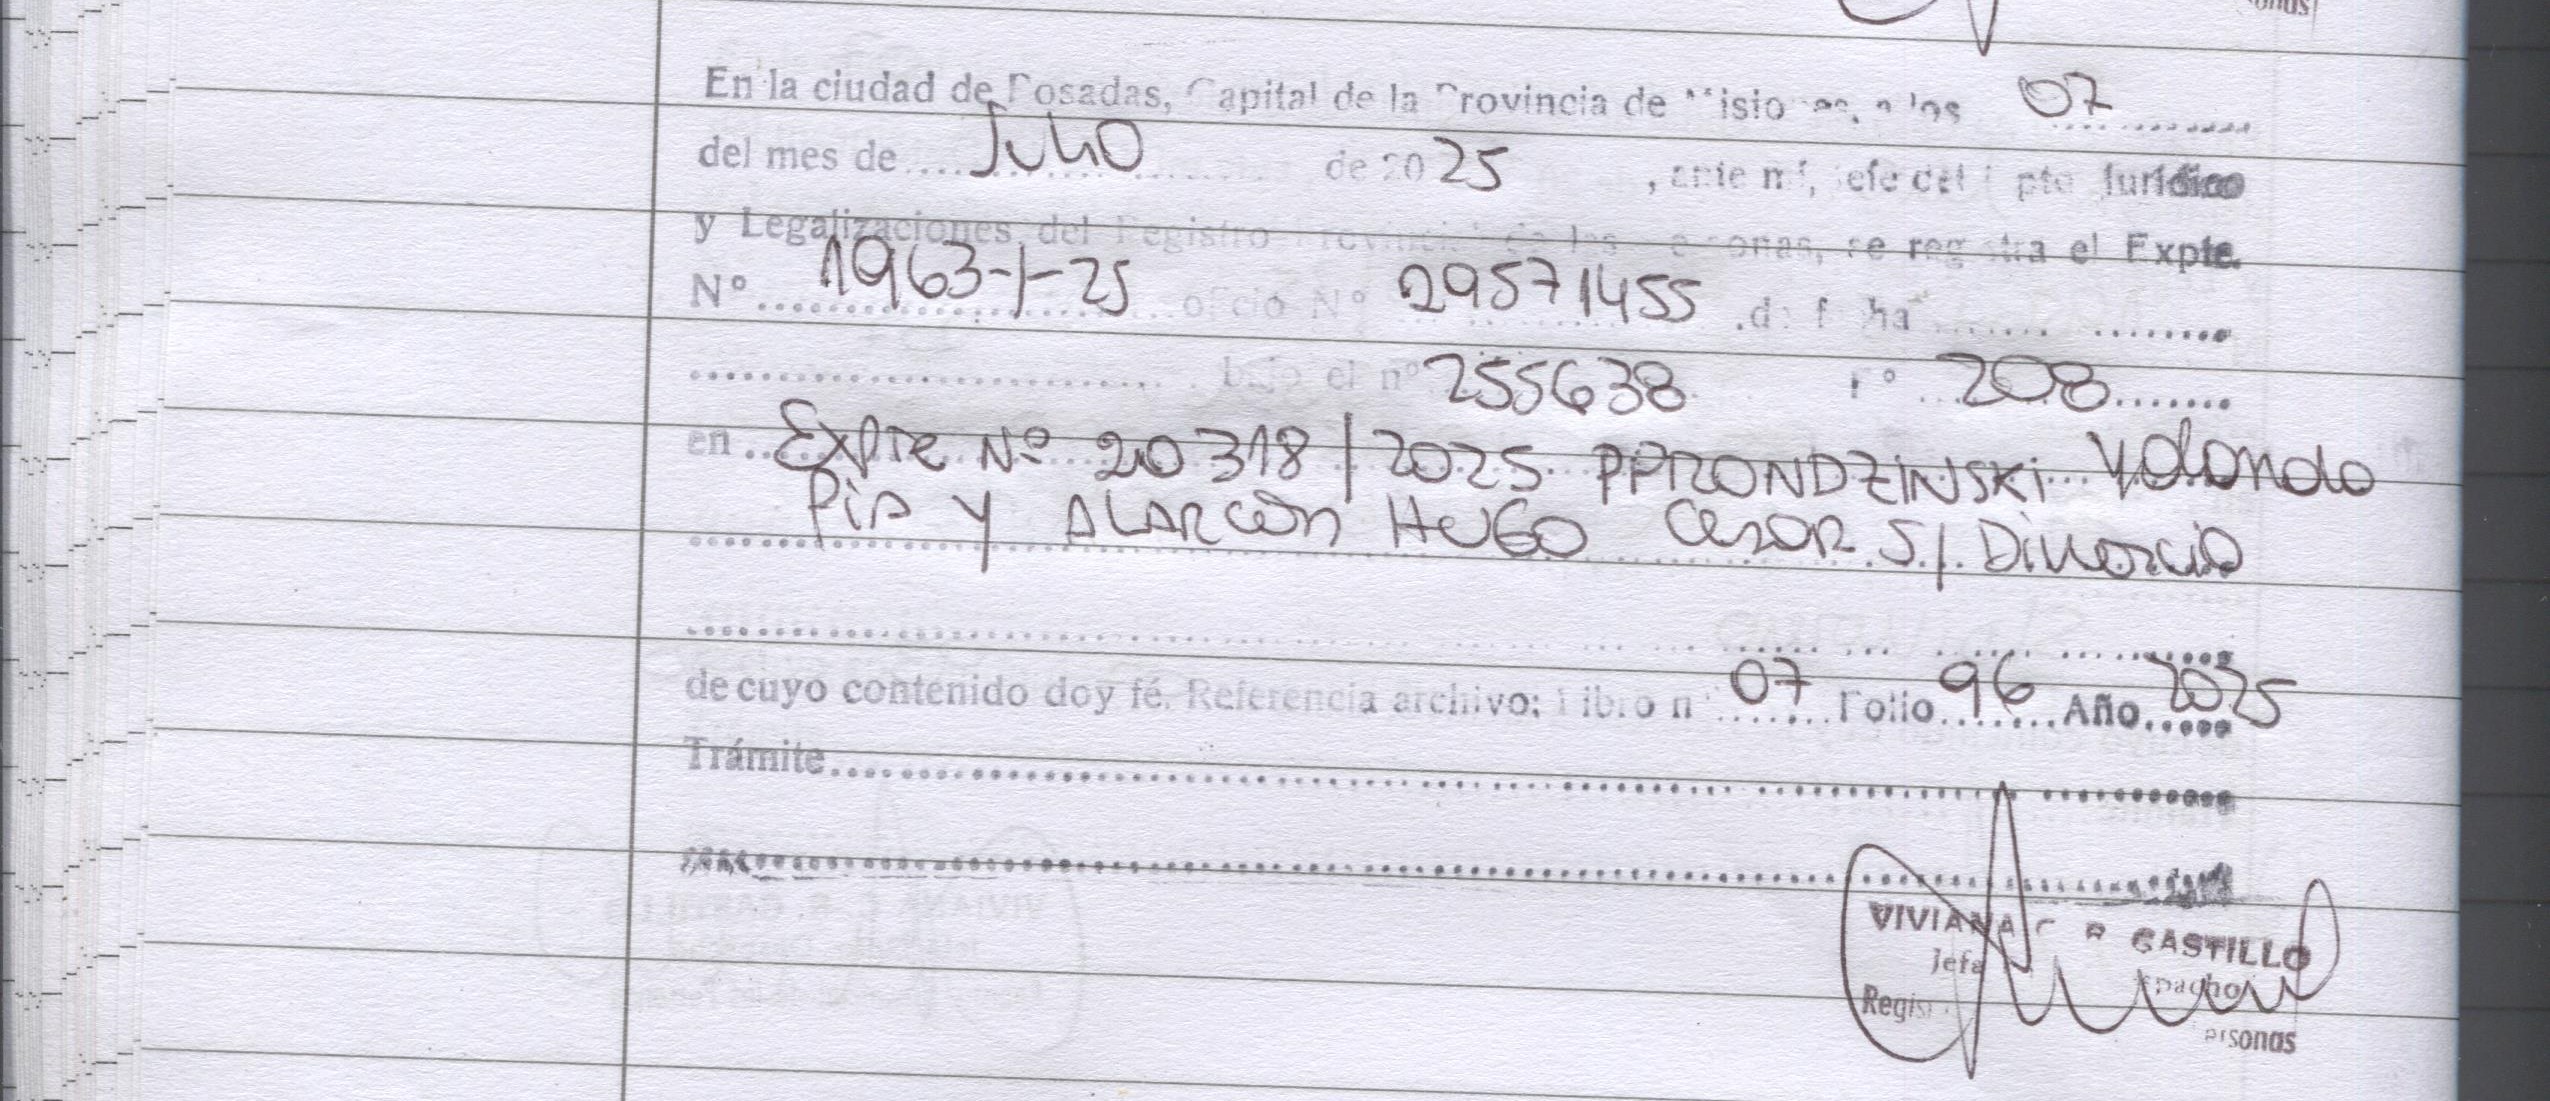 onas
En la ciudad de Posadas, Capital de la Provincia de Misiones, a los 07
del mes de Julio de 2025, ante mí, jefe del Dpto Jurídico
y Legalizaciones del Registro Provincial de las Personas, se registra el Expte.
Nº 1963-1-25 oficio Nº 29571455 de fecha
bajo el nº 255638 Fº 208
en Expte Nº 20318/2025 PRONDZINSKI Yolanda
Pia y ALARCON HUGO Cesar S/ Divorcio
de cuyo contenido doy fé. Referencia archivo: Libro nº 07 Folio 96 Año 2025
Trámite
VIVIANA C R CASTILLO
Jefa Despacho
Regis Personas